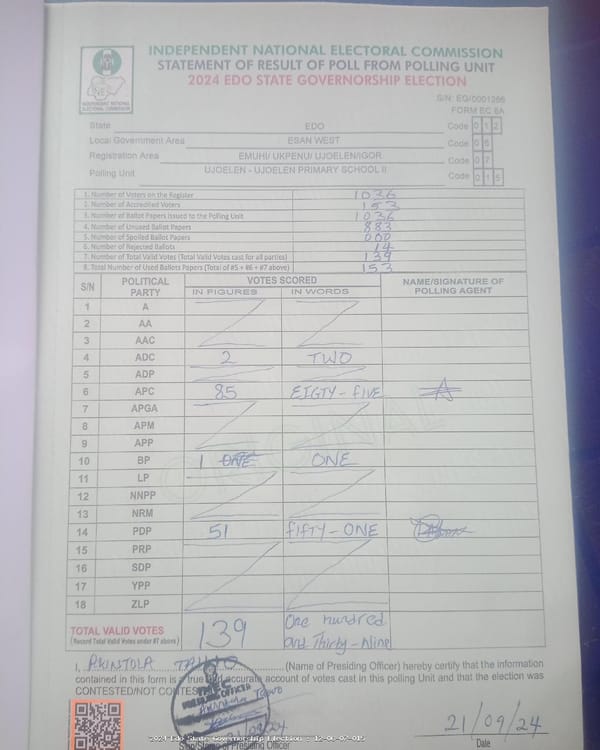 INDEPENDENT NATIONAL ELECTORAL COMMISSION
STATEMENT OF RESULT OF POLL FROM POLLING UNIT
2024 EDO STATE GOVERNORSHIP ELECTION
INDEPENDENT NATIONAL ELECTORAL COMMISSION
S/N: EG/0001266
FORM EC 8A
State EDO Code 0 1 2
Local Government Area ESAN WEST Code 0 6
Registration Area EMUHI/ UKPENU/ UJOELEN/IGOR Code 0 7
Polling Unit UJOELEN - UJOELEN PRIMARY SCHOOL II Code 0 1 5
1. Number of Voters on the Register 1036
2. Number of Accredited Voters 153
3. Number of Ballot Papers Issued to the Polling Unit 1036
4. Number of Unused Ballot Papers 883
5. Number of Spoiled Ballot Papers 000
6. Number of Rejected Ballots 14
7. Number of Total Valid Votes (Total Valid Votes cast for all parties) 139
8. Total Number of Used Ballots Papers (Total of #5 + #6 + #7 above) 153
S/N POLITICAL PARTY VOTES SCORED NAME/SIGNATURE OF POLLING AGENT
IN FIGURES IN WORDS
1 A
2 AA
3 AAC
4 ADC 2 TWO
5 ADP
6 APC 85 EIGTY-FIVE
7 APGA
8 APM
9 APP
10 BP 1 ONE ONE
11 LP
12 NNPP
13 NRM
14 PDP 51 FIFTY-ONE
15 PRP
16 SDP
17 YPP
18 ZLP
TOTAL VALID VOTES 139 One hundred
(Record Total Valid Votes under #7 above) and Thirty-Nine
I, AKINTOLA TAIWO (Name of Presiding Officer) hereby certify that the information
contained in this form is a true and accurate account of votes cast in this polling Unit and that the election was
CONTESTED/NOT CONTESTED
21/09/24
2024 Edo State Governorship Election - 12-06-07-015
Sign/Stamp of Presiding Officer Date